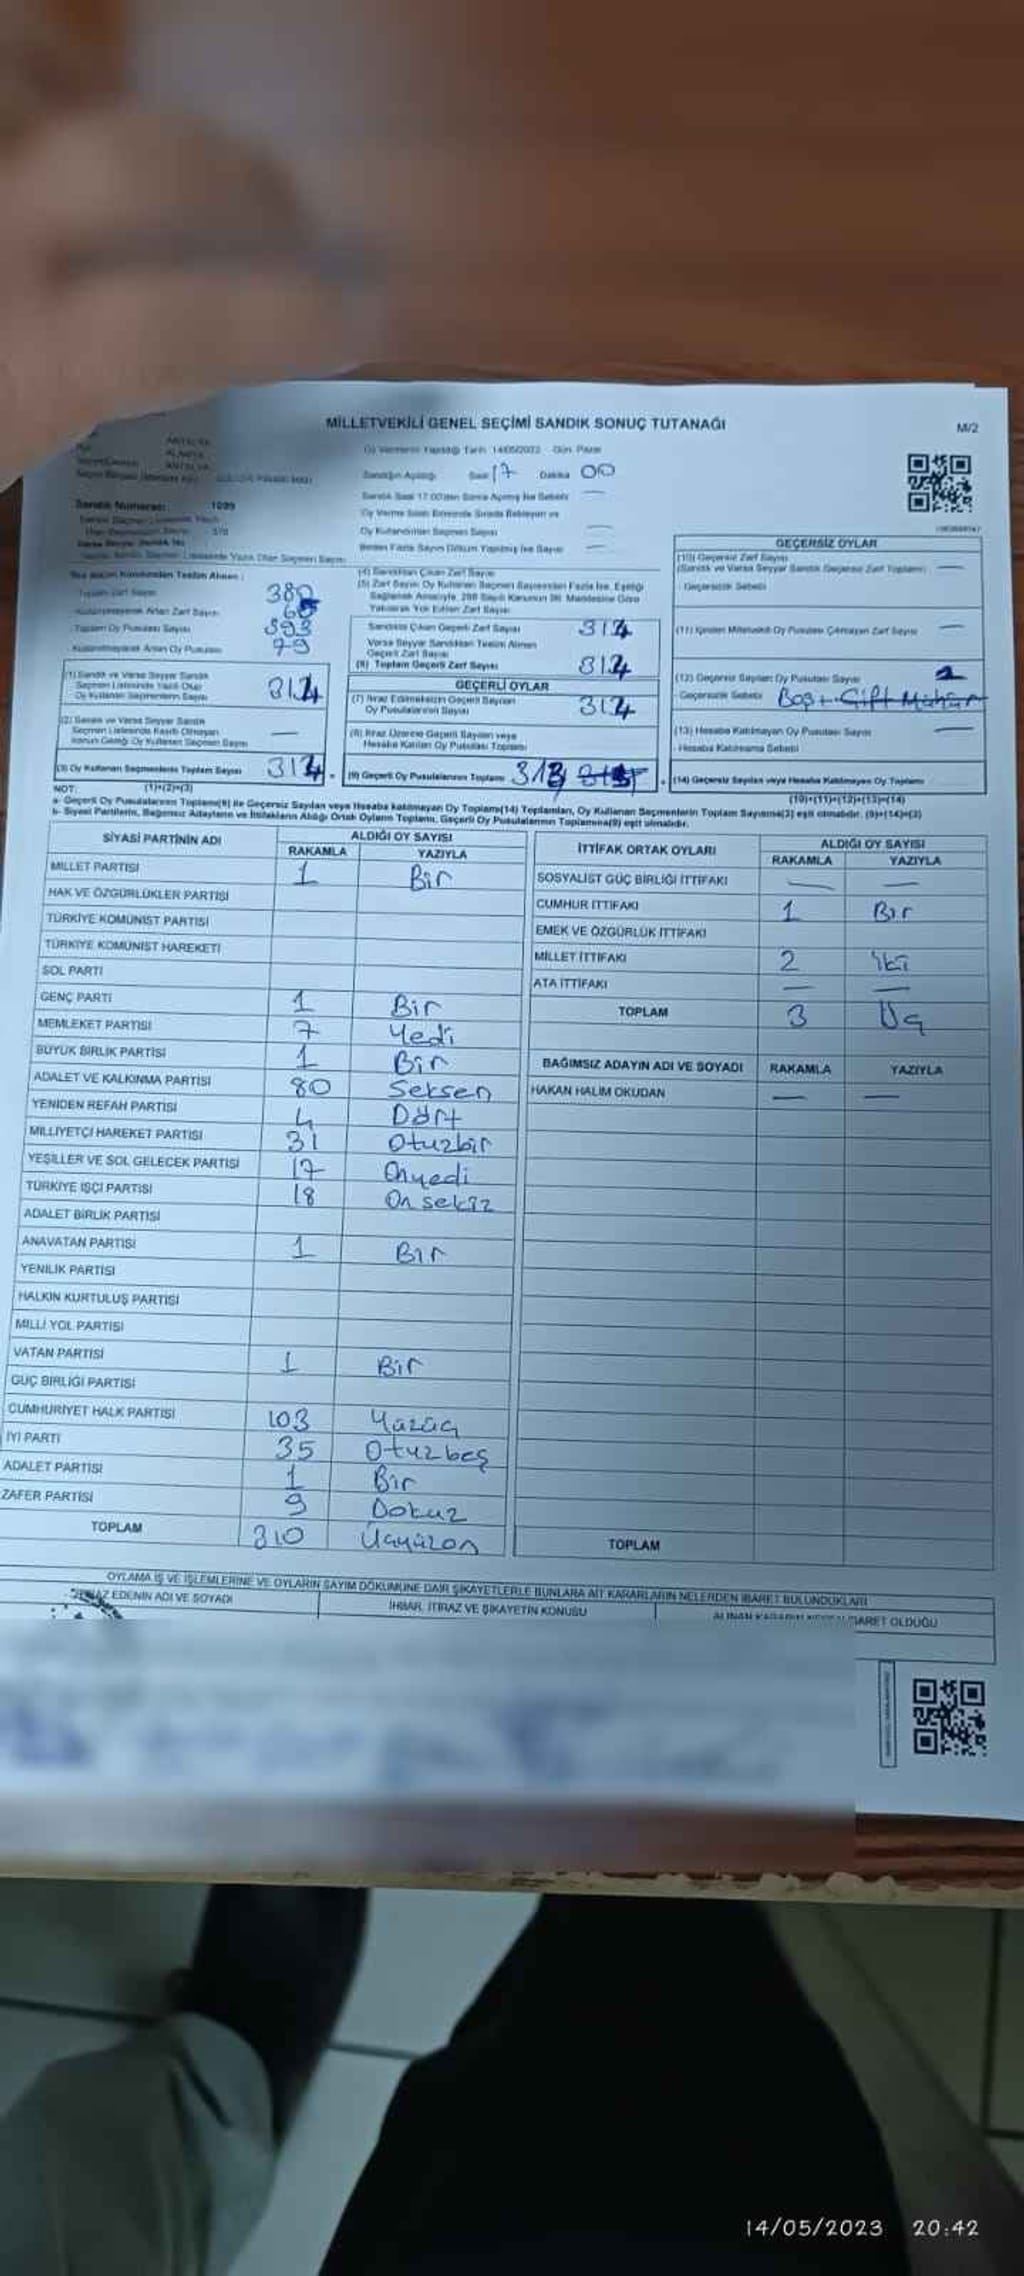 MİLLETVEKİLİ GENEL SEÇİMİ SANDIK SONUÇ TUTANAĞI
M/2
ANTALYA
ALANYA
ANTALYA
Oy Vermenin Yapıldığı Tarih: 14/05/2023 Gün: Pazar
Sandığın Açıldığı Saat 17 Dakika 00
Sandık Saat 17:00'den Sonra Açılmış İse Sebebi —
Sandık Numarası: 1099
Oy Kullandırılan Seçmen Sayısı —
Birden Fazla Sayım Döküm Yapılmış İse Sayısı —
Toplam Zarf Sayısı 380
Kullanılmayarak Artan Zarf Sayısı
Toplam Oy Pusulası Sayısı 393
Kullanılmayarak Artan Oy Pusulası 79
(1) Sandık ve Varsa Seyyar Sandık Seçmen Listesinde Yazılı Olan Oy Kullanan Seçmenlerin Sayısı 314
(2) Sandık ve Varsa Seyyar Sandık Seçmen Listesinde Kayıtlı Olmayan Kanun Gereği Oy Kullanan Seçmen Sayısı —
(3) Oy Kullanan Seçmenlerin Toplam Sayısı 314
(1)+(2)=(3)
(4) Sandıktan Çıkan Zarf Sayısı
(5) Zarf Sayısı Oy Kullanan Seçmen Sayısından Fazla İse, Eşitliği
Sağlamak Amacıyla, 298 Sayılı Kanunun 98. Maddesine Göre
Yakılarak Yok Edilen Zarf Sayısı
Sandıkta Çıkan Geçerli Zarf Sayısı 314
Varsa Seyyar Sandıktan Teslim Alınan Geçerli Zarf Sayısı
(6) Toplam Geçerli Zarf Sayısı 314
GEÇERLİ OYLAR
(7) İtiraz Edilmeksizin Geçerli Sayılan Oy Pusulalarının Sayısı 312
(8) İtiraz Üzerine Geçerli Sayılan veya Hesaba Katılan Oy Pusulası Toplamı
(9) Geçerli Oy Pusulalarının Toplamı 313
GEÇERSİZ OYLAR
(10) Geçersiz Zarf Sayısı
(Sandık ve Varsa Seyyar Sandık Geçersiz Zarf Toplamı) —
Geçersizlik Sebebi
(11) İçinden Milletvekili Oy Pusulası Çıkmayan Zarf Sayısı —
(12) Geçersiz Sayılan Oy Pusulası Sayısı 1
Geçersizlik Sebebi Boş + Çift Mühür
(13) Hesaba Katılmayan Oy Pusulası Sayısı —
Hesaba Katılmama Sebebi
(14) Geçersiz Sayılan veya Hesaba Katılmayan Oy Toplamı
(10)+(11)+(12)+(13)=(14)
NOT:
a- Geçerli Oy Pusulalarının Toplamı(9) ile Geçersiz Sayılan veya Hesaba katılmayan Oy Toplamı(14) Toplamları, Oy Kullanan Seçmenlerin Toplam Sayısına(3) eşit olmalıdır. (9)+(14)=(3)
b- Siyasi Partilerin, Bağımsız Adayların ve İttifakların Aldığı Ortak Oyların Toplamı, Geçerli Oy Pusulalarının Toplamına(9) eşit olmalıdır.
SİYASİ PARTİNİN ADI ALDIĞI OY SAYISI
RAKAMLA YAZIYLA
MİLLET PARTİSİ 1 Bir
HAK VE ÖZGÜRLÜKLER PARTİSİ
TÜRKİYE KOMÜNİST PARTİSİ
TÜRKİYE KOMÜNİST HAREKETİ
SOL PARTİ
GENÇ PARTİ 1 Bir
MEMLEKET PARTİSİ 7 Yedi
BÜYÜK BİRLİK PARTİSİ 1 Bir
ADALET VE KALKINMA PARTİSİ 80 Seksen
YENİDEN REFAH PARTİSİ 4 Dört
MİLLİYETÇİ HAREKET PARTİSİ 31 Otuzbir
YEŞİLLER VE SOL GELECEK PARTİSİ 17 Onyedi
TÜRKİYE İŞÇİ PARTİSİ 18 On sekiz
ADALET BİRLİK PARTİSİ
ANAVATAN PARTİSİ 1 Bir
YENİLİK PARTİSİ
HALKIN KURTULUŞ PARTİSİ
MİLLİ YOL PARTİSİ
VATAN PARTİSİ 1 Bir
GÜÇ BİRLİĞİ PARTİSİ
CUMHURİYET HALK PARTİSİ 103 Yüzüç
İYİ PARTİ 35 Otuzbeş
ADALET PARTİSİ 1 Bir
ZAFER PARTİSİ 9 Dokuz
TOPLAM 310 Üçyüzon
İTTİFAK ORTAK OYLARI ALDIĞI OY SAYISI
RAKAMLA YAZIYLA
SOSYALİST GÜÇ BİRLİĞİ İTTİFAKI — —
CUMHUR İTTİFAKI 1 Bir
EMEK VE ÖZGÜRLÜK İTTİFAKI
MİLLET İTTİFAKI 2 İki
ATA İTTİFAKI — —
TOPLAM 3 Üç
BAĞIMSIZ ADAYIN ADI VE SOYADI RAKAMLA YAZIYLA
HAKAN HALİM OKUDAN — —
TOPLAM
OYLAMA İŞ VE İŞLEMLERİNE VE OYLARIN SAYIM DÖKÜMÜNE DAİR ŞİKAYETLERLE BUNLARA AİT KARARLARIN NELERDEN İBARET BULUNDUKLARI
EDENİN ADI VE SOYADI
İHBAR, İTİRAZ VE ŞİKAYETİN KONUSU
İBARET OLDUĞU
14/05/2023 20:42